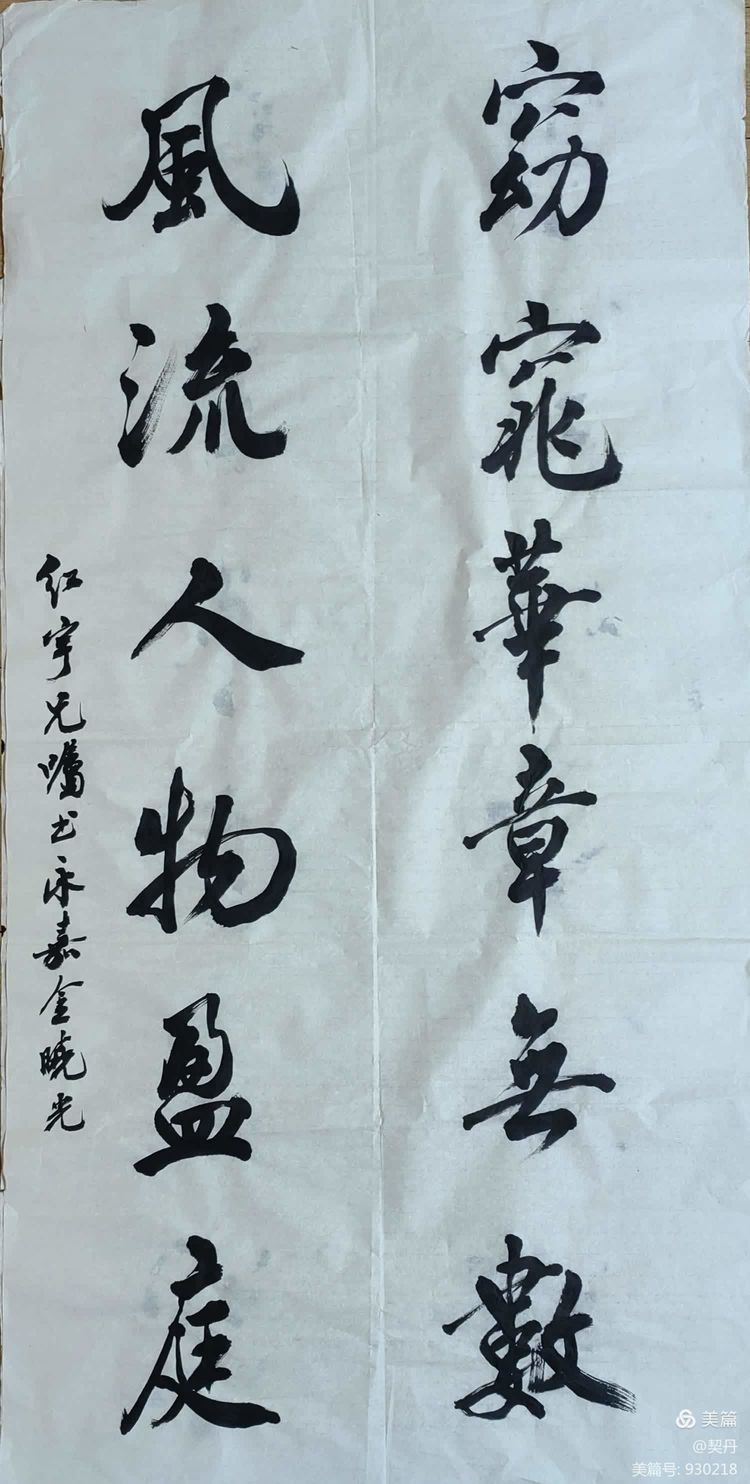 窈窕華章無數
風流人物盈庭
红宇兄囑书永嘉金曉光
美篇
@契丹
美篇号: 930218